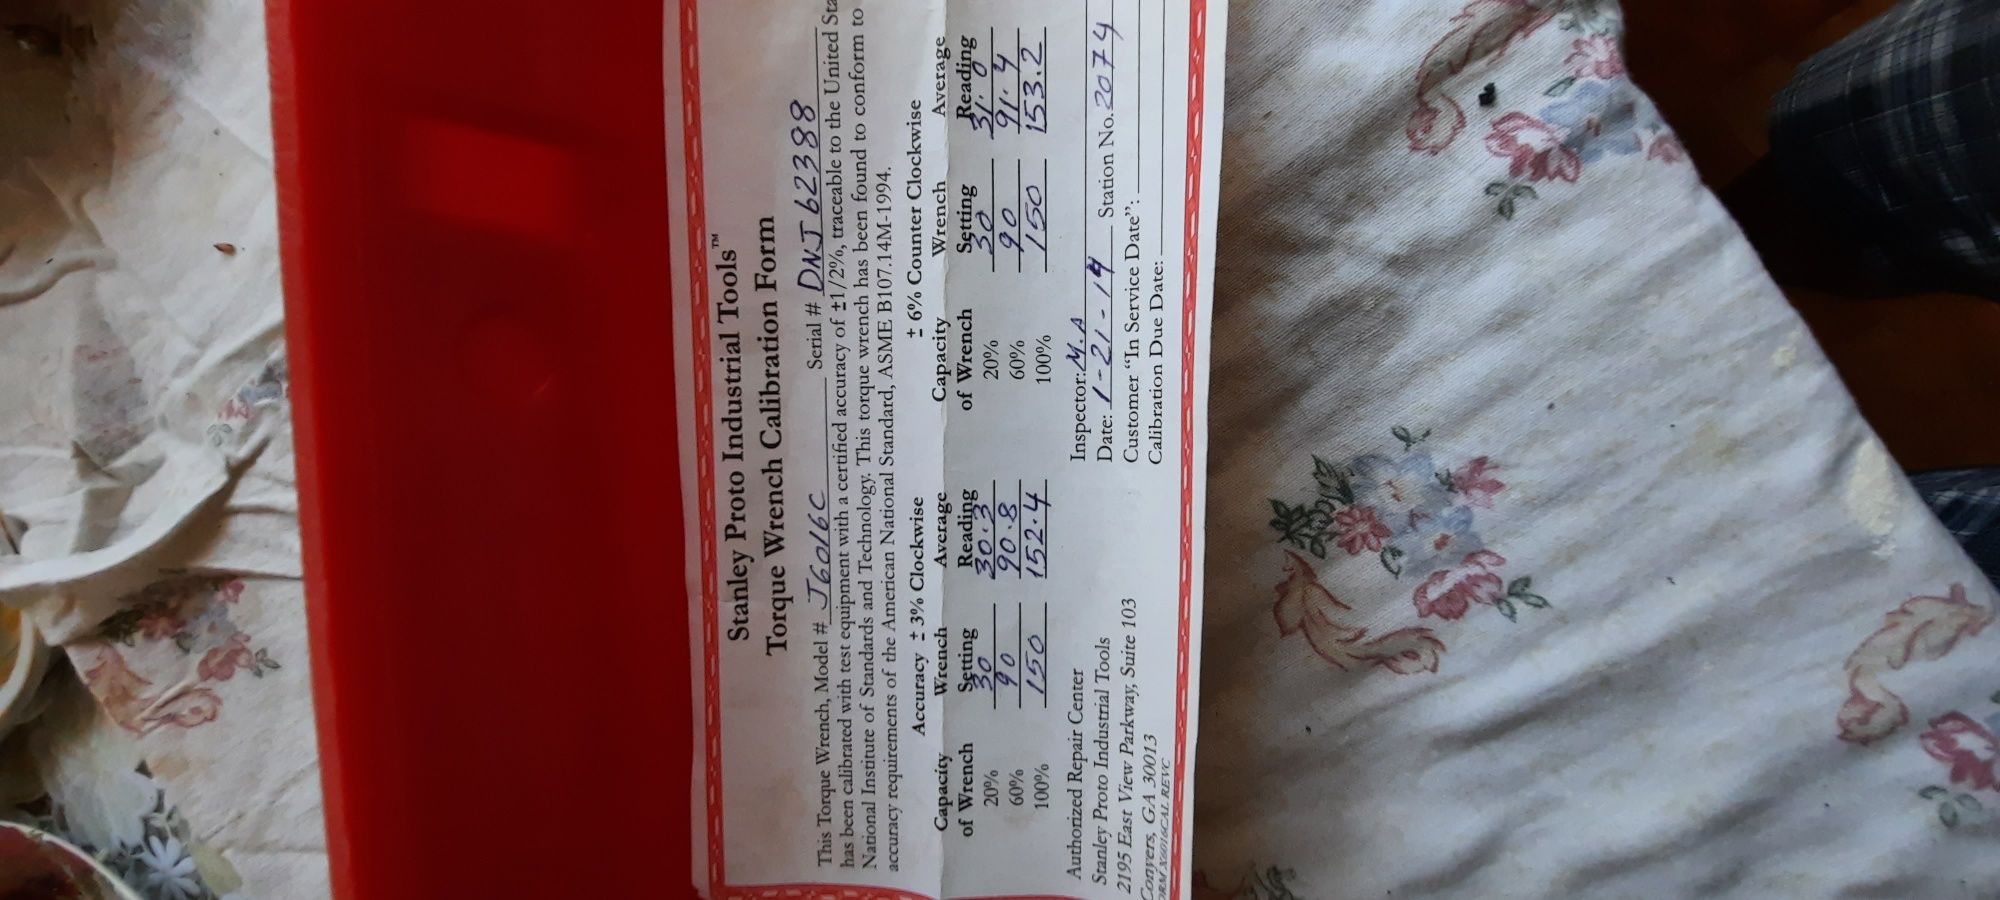 Stanley Proto Industrial Tools™
Torque Wrench Calibration Form
This Torque Wrench, Model # J6016C Serial # DNJ62388
has been calibrated with test equipment with a certified accuracy of ±1/2%, traceable to the United Sta
National Institute of Standards and Technology. This torque wrench has been found to conform to
accuracy requirements of the American National Standard, ASME B107.14M-1994.
Accuracy ± 3% Clockwise ± 6% Counter Clockwise
Capacity Wrench Average Capacity Wrench Average
of Wrench Setting Reading of Wrench Setting Reading
20% 30 30.3 20% 30 31.0
60% 90 90.8 60% 90 91.4
100% 150 152.4 100% 150 153.2
Authorized Repair Center Inspector: M.A
Stanley Proto Industrial Tools Date: 1-21-14 Station No. 2074
2195 East View Parkway, Suite 103 Customer “In Service Date”:
Conyers, GA 30013 Calibration Due Date:
REVC